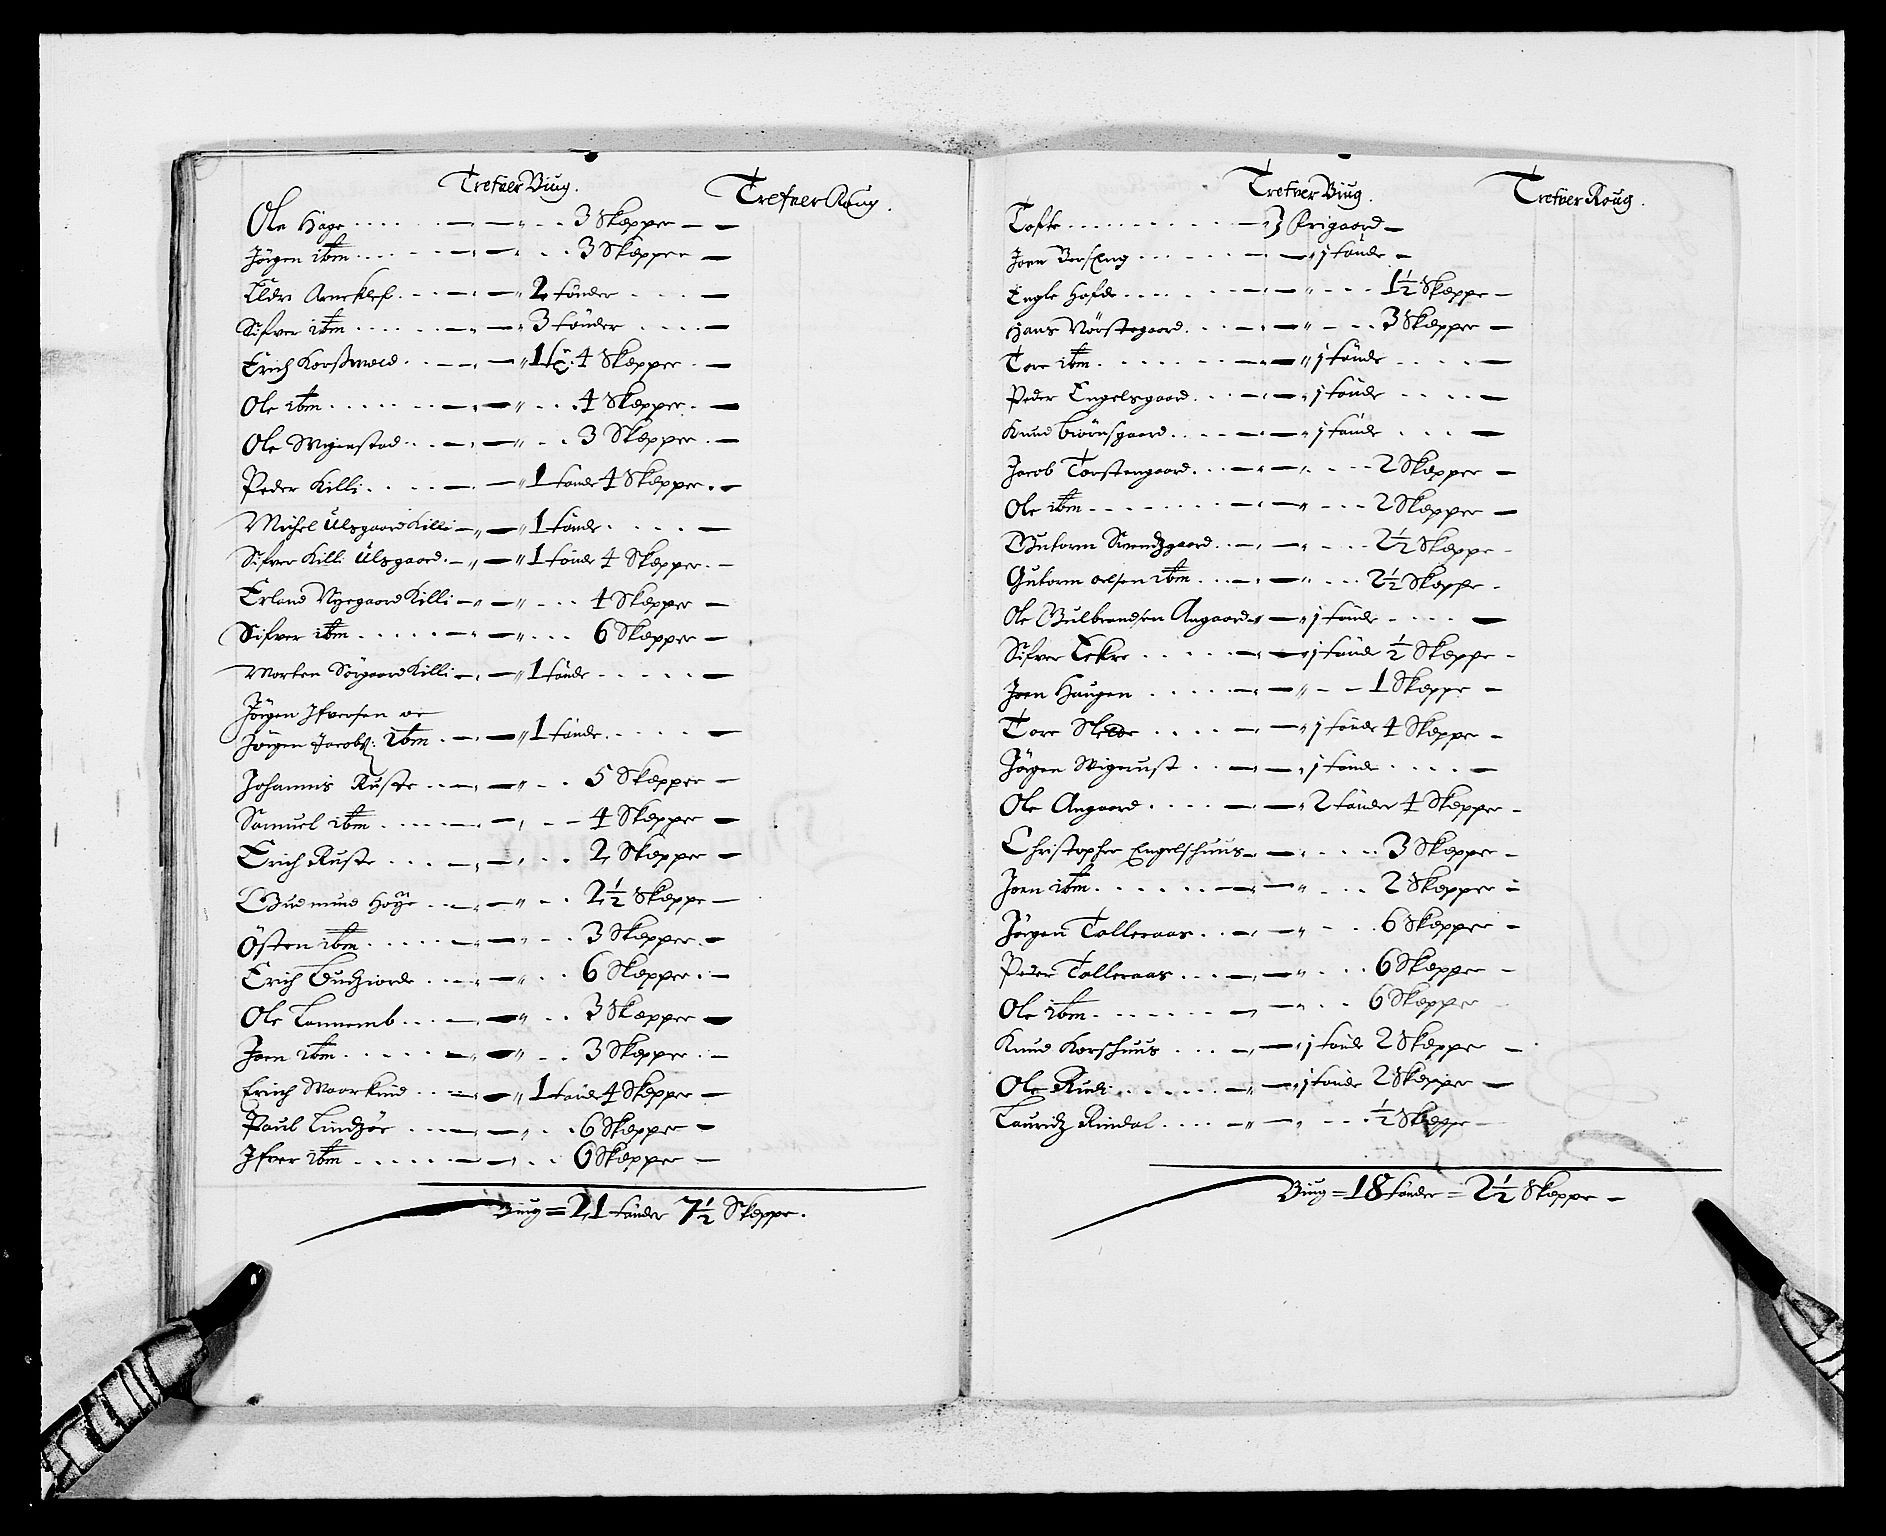 Trefver Biug.
Trefver Roug.
Ole Hage 3 Skepper
Jörgen ibm 3 Skepper
Eldri Arneklef 2 tönder
Sifver ibm 3 tönder
Erich 1 tö: 4 Skepper
Ole ibm 4 Skepper
Ole Wigenstad 3 Skepper
Peder Killi 1 tönde 4 Skepper
Michel Ulsgaard Killi 1 tönde
Sifver Killi Ulsgaard 1 tönde 4 Skepper
Erland Nygaard Killi 4 Skepper
Sifver ibm 6 Skepper
Morten Sörgaard Killi 1 tönde
Jörgen Ifversen oc
Jörgen Jacobs: ibm 1 tönde
Johannis Ruste 5 Skepper
Samuel ibm 4 Skepper
Erich Ruste 2 Skepper
Gudmund Höye 2½ Skeppe
Östen ibm 3 Skepper
Erich 6 Skepper
Ole 3 Skepper
Joen ibm 3 Skepper
Erich 1 tönde 4 Skepper
Paul Lindsöe 6 Skepper
Ifver ibm 6 Skepper
Biug = 21 tönder 7½ Skeppe.
Trefver Biug.
Trefver Roug.
Tofte
Joen 1 tönde
Engle Hofde 1½ Skeppe
Hans Nörstegaard 3 Skepper
Tore ibm 1 tönde
Peder Engelsgaard 1 tönde
Knud Biörnsgaard 1 tönde
Jacob Torstengaard 2 Skepper
Ole ibm 2 Skepper
Gutorm Svendzgaard 2½ Skeppe
Gutorm Olsen ibm 2½ Skeppe
Ole Gulbrandsen Angaard 1 tönde
Sifver Eekre 1 tönde ½ Skeppe
Joen Haugen 1 Skeppe
Tore 1 tönde 4 Skeppe
Jörgen Wigerust 1 tönde
Ole Angaard 2 tönder 4 Skeppe
Christopher Engelshuus 3 Skepper
Joen ibm 2 Skepper
Jörgen Tolleraas 6 Skepper
Peder Tolleraas 6 Skepper
Ole ibm 6 Skepper
Knud Korshuus 1 tönde 2 Skepper
Ole Rudi 1 tönde 2 Skepper
Lauridz Rindal ½ Skeppe
Biug = 18 tönder = 2½ Skeppe